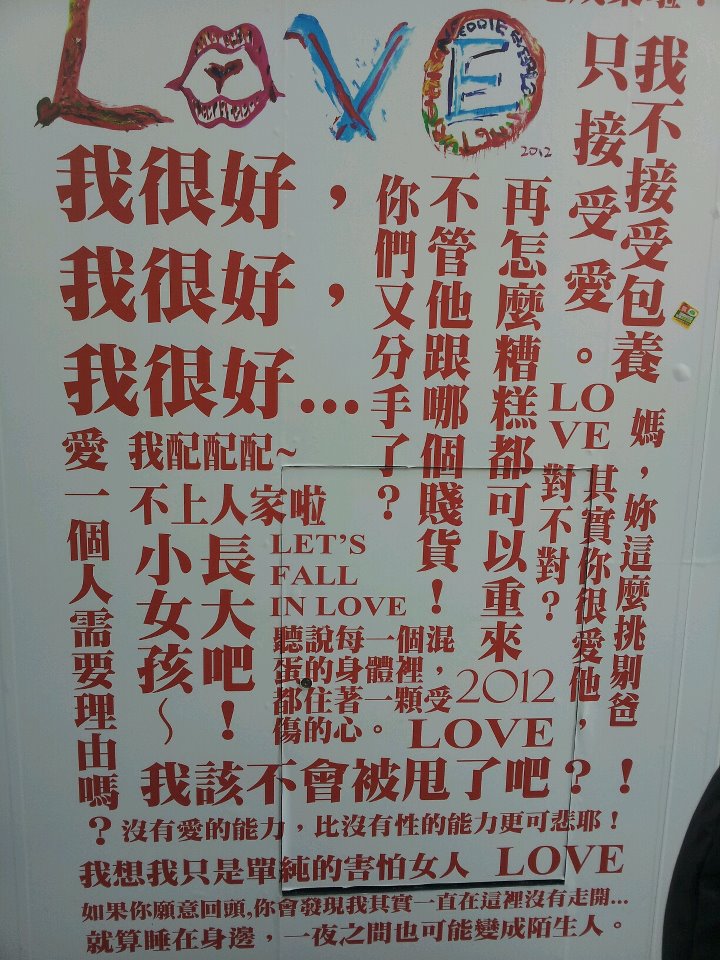 LOVE
2012
我不接受包養
只接受愛。
LO
VE
媽，妳這麼挑剔爸
其實你很愛他，
對不對？
再怎麼糟糕都可以重來
不管他跟哪個賤貨！
你們又分手了？
我很好，
我很好，
我很好...
我配配配~
不上人家啦
愛一個人需要理由嗎？
長大吧！
小女孩～
LET'S
FALL
IN LOVE
聽說每一個混
蛋的身體裡，
都住著一顆受
傷的心。
2012
LOVE
我該不會被甩了吧？！
沒有愛的能力，比沒有性的能力更可悲耶！
我想我只是單純的害怕女人 LOVE
如果你願意回頭,你會發現我其實一直在這裡沒有走開...
就算睡在身邊，一夜之間也可能變成陌生人。